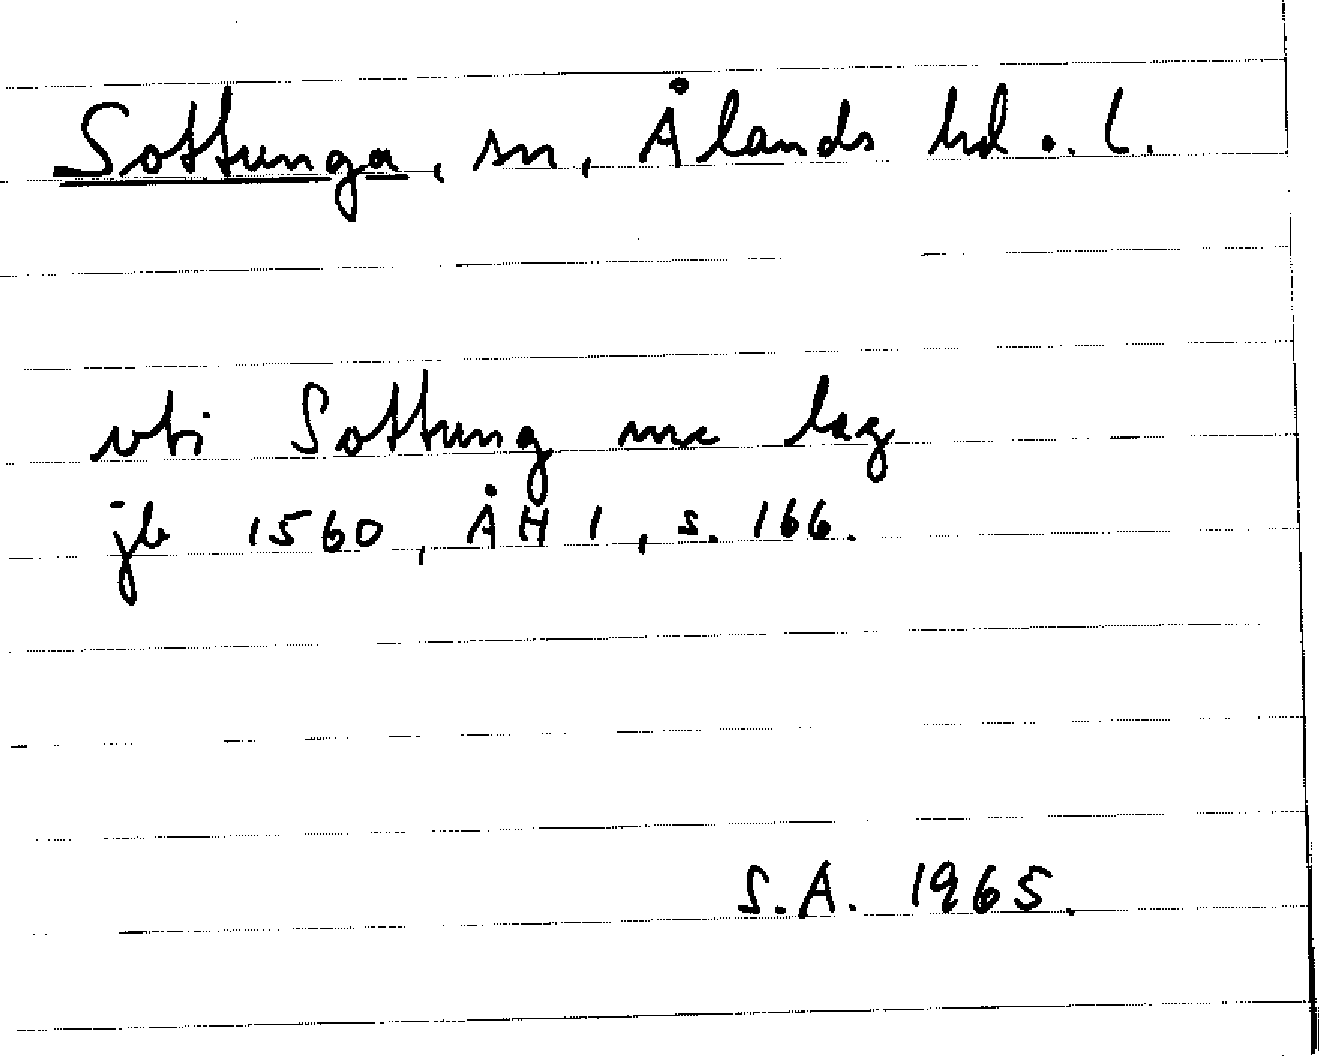 Sottunga, sn, Ålands hd o. l.
vti Sottung me lag
jb 1560, ÅH 1, s. 166.
S.A. 1965.